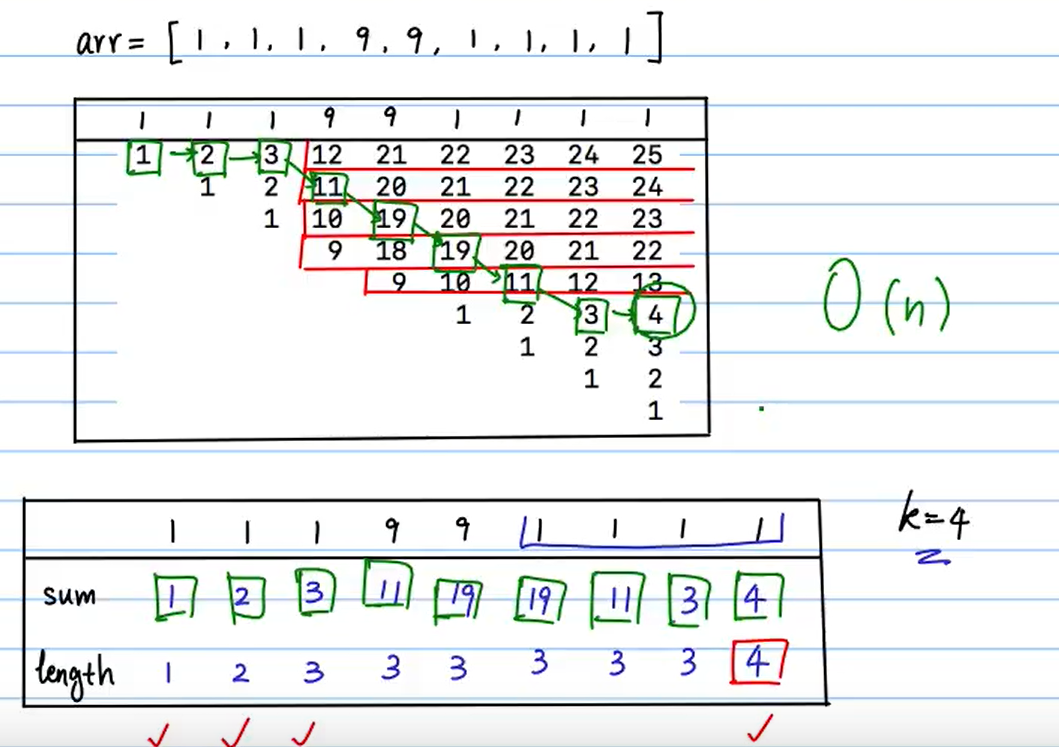 arr = [ 1, 1, 1, 9, 9, 1, 1, 1, 1 ]
1 1 1 9 9 1 1 1 1
1 2 3 12 21 22 23 24 25
1 2 11 20 21 22 23 24
1 10 19 20 21 22 23
9 18 19 20 21 22
9 10 11 12 13
O(n)
1 2 3 4
1 2 3
1 2
1
1 1 1 9 9 1 1 1 1
k=4
sum 1 2 3 11 19 19 11 3 4
length 1 2 3 3 3 3 3 3 4